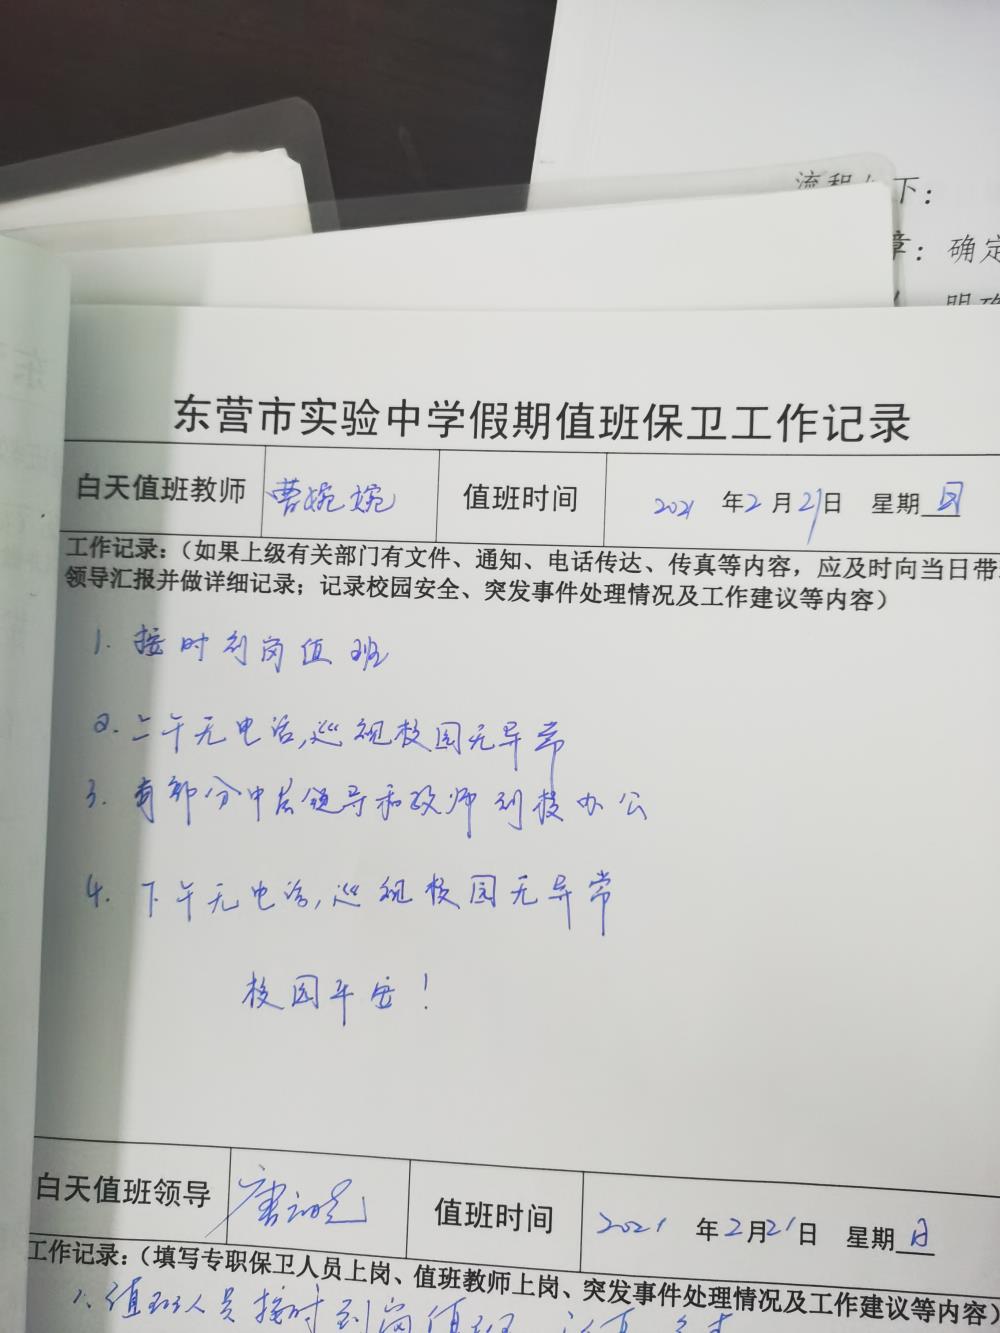 流程 下：
章：确定
明确
东营市实验中学假期值班保卫工作记录
白天值班教师 曹婉婉 值班时间 2021 年 2 月 21 日 星期 日
工作记录：（如果上级有关部门有文件、通知、电话传达、传真等内容，应及时向当日带
领导汇报并做详细记录；记录校园安全、突发事件处理情况及工作建议等内容）
1. 按时到岗值班
2. 上午无电话，巡视校园无异常
3. 有部分中层领导和教师到校办公
4. 下午无电话，巡视校园无异常
校园平安！
白天值班领导 值班时间 2021 年 2 月 21 日 星期 日
工作记录：（填写专职保卫人员上岗、值班教师上岗、突发事件处理情况及工作建议等内容）
1. 值班人员按时到岗值班 认真